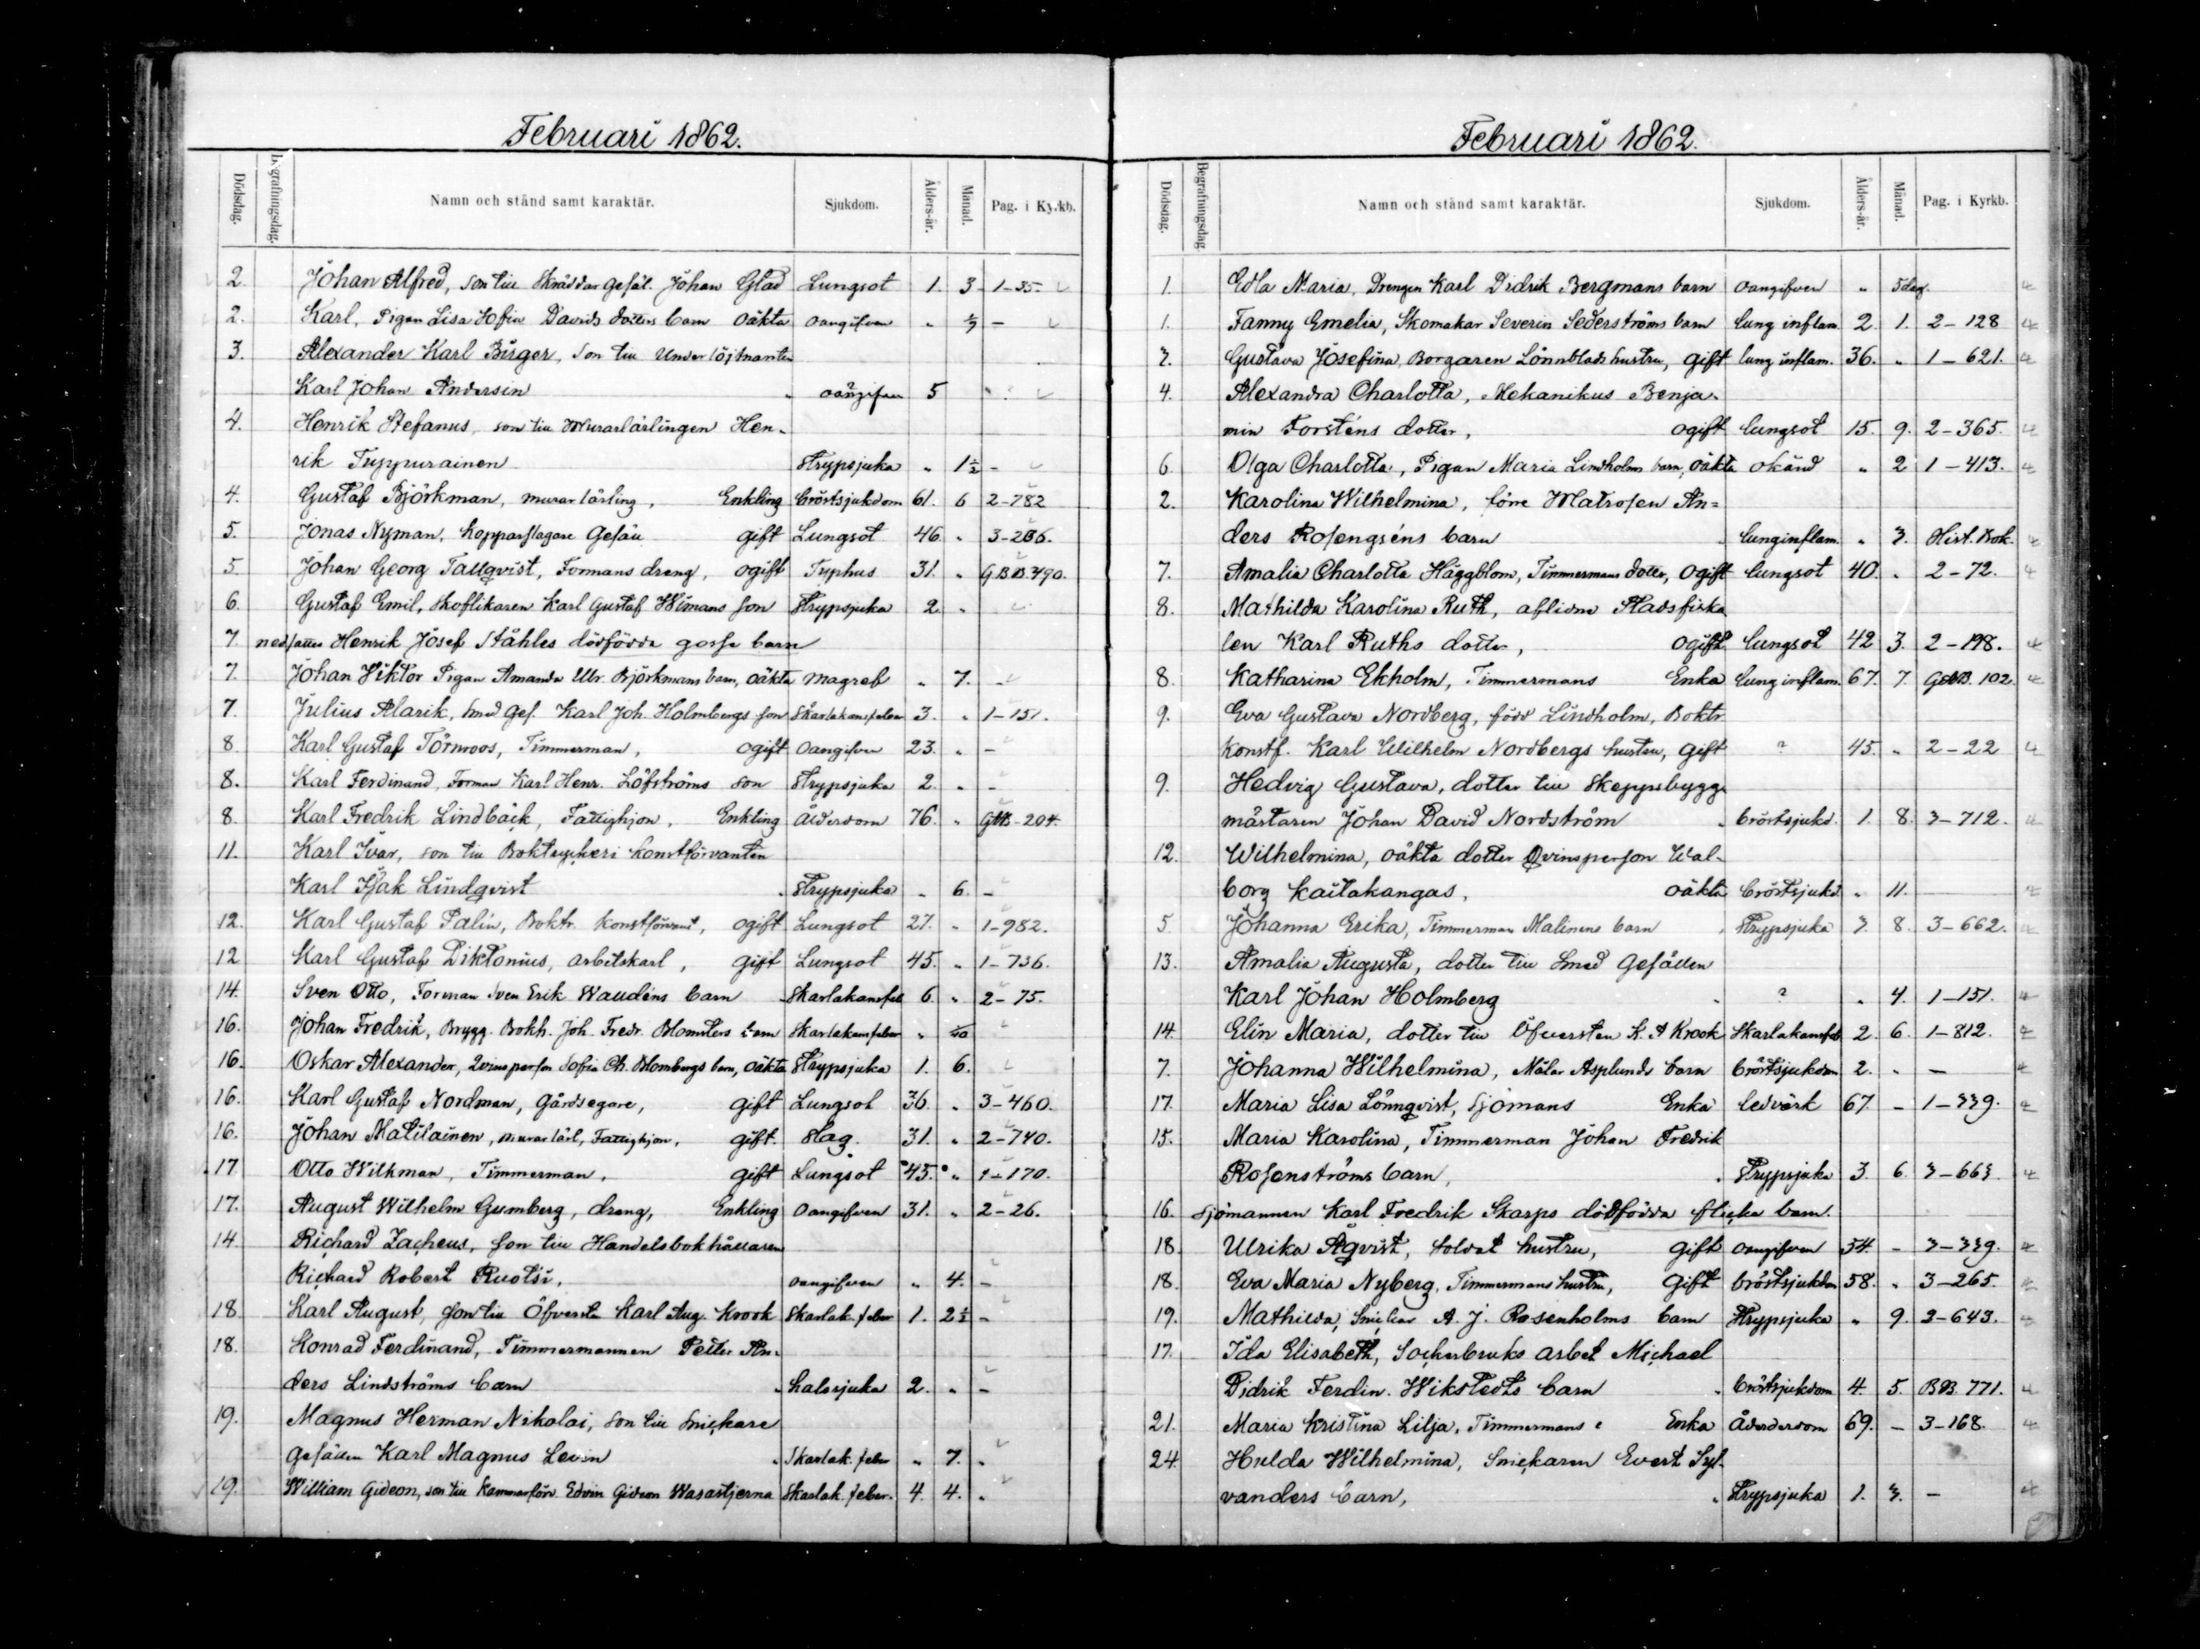 Februari 1862.
Dödsdag. Begrafningsdag. Namn och stånd samt karaktär. Sjukdom. Ålders-år. Månad. Pag. i Kyrkb.
2. Johan Alfred, son till Skräddar Gesäl. Johan Glad Lungsot 1. 3 1-35.
2. Karl, Pigan Lisa Sofia Davids dotters barn oäkta oangifven "
3. Alexander Karl Birger, son till Under löjtnanten
Karl Johan Andersin " oangifven 5 "
4. Henrik Stefanus, son till Murarlärlingen Hen-
rik Tuppurainen Strypsjuka " 1½ -
4. Gustaf Björkman, murarlärling, Enkling bröstsjukdom 61. 6 2-782
5. Jonas Nyman, Kopparslagare Gesäll gift Lungsot 46 " 3-286.
5. Johan Georg Tallqvist, Formans dreng, ogift Typhus 31. " G.B.B. 490.
6. Gustaf Emil, Skoflikaren Karl Gustaf Wimans son Strypsjuka 2. "
7. Henrik Josef Ståhles dödfödda gosse barn
7. Johan Viktor Pigan Amanda Ulr. Björkmans barn, oäkta magref " 7. -
7. Julius Alarik, smed Ges. Karl Joh. Holmbergs son Skarlakansfeber 3. " 1-151.
8 Karl Gustaf Törnroos, Timmerman, ogift oangifven 23. " -
8. Karl Ferdinand, Forman Karl Henr. Löfströms son Strypsjuka 2. " -
8. Karl Fredrik Lindbäck, Fattighjon, Enkling Ålderdom 76. " GBB-204.
11. Karl Ivar, son till Boktryckeri konstförvanten
Karl Isak Lindqvist " Strypsjuka " 6. -
12. Karl Gustaf Palin, Boktr. konstförvant, ogift Lungsot 27. " 1-982.
12 Karl Gustaf Diktonius, arbetskarl, gift Lungsot 45. " 1-736.
14. Sven Otto, Forman Sven Erik Walldéns barn Skarlakansfeb 6. " 2-75.
16. Johan Fredrik, Brygg. Bokh. Joh. Fredr. Blomsters barn Skarlakansfeber "
16. Oskar Alexander, Qvinsperson Sofia Ch. Blombergs barn, oäkta Strypsjuka 1. 6.
16. Karl Gustaf Nordman, Gårdsegare, gift Lungsot 36. " 3-460.
16. Johan Matilainen, murarlärl., Fattighjon, gift. slag. 31. " 2-740.
17 Otto Wilkman, Timmerman, gift Lungsot 45. " 1-170.
17. August Wilhelm Gumberg, dreng, Enkling oangifven 31. " 2-26.
14 Richard Zacheus, son till Handelsbokhållaren
Richard Robert Ruotsi, oangifven " 4. -
18 Karl August, son till Öfversten Karl Aug. Krook Skarlak. feber 1. 2½ -
18. Konrad Ferdinand, Timmermannen Petter An-
ders Lindströms barn " halssjuka 2. " -
19. Magnus Herman Nikolai, son till Snickare
Gesällen Karl Magnus Levin " Skarlak. feber " 7. "
19. William Gideon, son till Kammarförv. Edvin Gideon Wasastjerna Skarlak. feber. 4. 4. "
Februari 1862.
Dödsdag. Begrafningsdag. Namn och stånd samt karaktär. Sjukdom. Ålders-år. Månad. Pag. i Kyrkb.
1. Edla Maria, Drengen Karl Didrik Bergmans barn oangifven " 5 dag.
1. Fanny Emelia, Skomakar Severin Sederströms barn lung inflam. 2. 1. 2-128
3. Gustava Josefina, Borgaren Lönnblads hustru, gift lung inflam. 36. " 1-621.
4. Alexandra Charlotta, Mekanikus Benja-
min Forsténs dotter, ogift lungsot 15. 9. 2-365.
6. Olga Charlotta, Pigan Maria Lindholms barn, oäkta okänd " 2 1-413.
2. Karolina Wilhelmina, förre Matrosen An=
ders Rosengréns barn lunginflam. " 3. Hist. Bok.
7. Amalia Charlotta Häggblom, Timmermans dotter, ogift lungsot 40. " 2-72.
8. Mathilda Karolina Ruth, aflidne Stadsfiska
len Karl Ruths dotter, ogift lungsot 42 3. 2-198.
8. Katharina Ekholm, Timmermans Enka lung inflam. 67. 7. GBB. 102.
9. Eva Gustava Nordberg, född Lindholm, Boktr.
konstf. Karl Wilhelm Nordbergs hustru, gift ? 45. " 2-22
9. Hedvig Gustava, dotter till Skeppsbygge
mästaren Johan David Nordström " bröstsjukd. 1. 8. 3-712.
12. Wilhelmina, oäkta dotter Qvinsperson Wal-
borg Kaitakangas, oäkta bröstsjukd. " 11.
5 Johanna Erika, Timmerman Malinens barn Strypsjuka 3. 8. 3-662.
13. Amalia Augusta, dotter till Smed Gesällen
Karl Johan Holmberg " ? " 4. 1-151.
14. Elin Maria, dotter till Öfversten K. A Krook Skarlakansfeb 2. 6. 1-812.
7. Johanna Wilhelmina, Målar Asplunds barn bröstsjukdom 2. " -
17. Maria Lisa Lönnqvist, Sjömans Enka ledvärk 67. - 1-339.
15. Maria Karolina, Timmerman Johan Fredrik
Rosenströms barn, " Strypsjuka 3. 6. 3-663
16. sjömannen Karl Fredrik Skarps dödfödda flicka barn.
18. Ulrika Åqvist, soldat hustru, gift oangifven 54. - 3-339.
18. Eva Maria Nyberg, Timmermans hustru, Gift bröstsjukdom 58. " 3-265.
19. Mathilda, Snickar A. J. Rosenholms barn Strypsjuka " 9. 2-643.
17. Ida Elisabeth, Sockerbruks arbet Michael
Didrik Ferdin. Wikstedts barn " bröstsjukdom 4. 5. BB. 771.
21. Maria Kristina Lilja, Timmermans Enka Ålderdom 69. - 3-168
24. Hulda Wilhelmina, Snickaren Evert Syl-
vanders barn, " Strypsjuka 1. 3. -